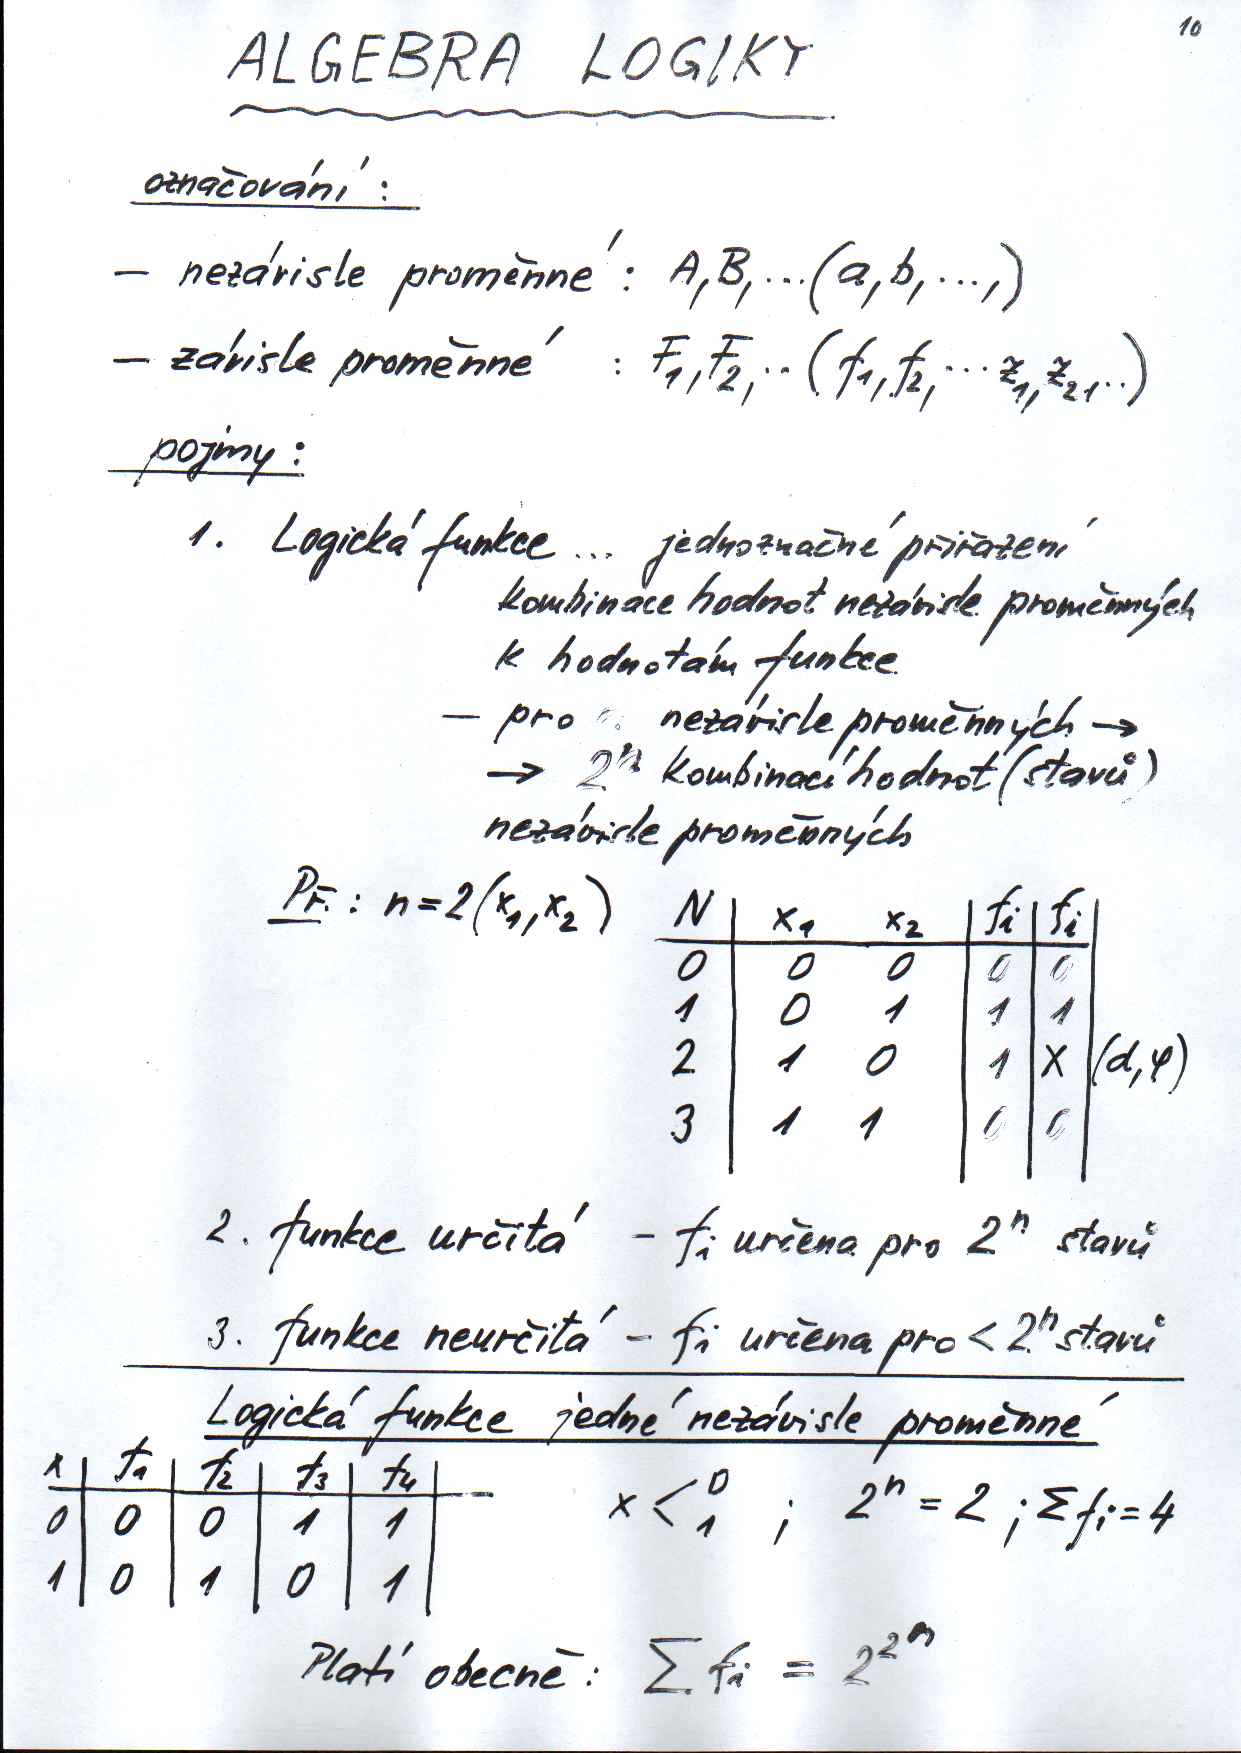 10
ALGEBRA LOGIKY
označování:
— nezávisle proměnné: A, B, ... (a, b, ...,)
— závisle proměnné : F₁, F₂, .. (f₁, f₂, ... z₁, z₂, ..)
pojmy:
1. Logická funkce ... jednoznačné přiřazení
kombinace hodnot nezávisle proměnných
k hodnotám funkce
— pro nezávisle proměnných →
→ 2ⁿ kombinací hodnot (stavů)
nezávisle proměnných
Př.: n=2 (x₁, x₂)
N | x₁ x₂ | fᵢ | fᵢ |
0 | 0 0 | 0 | 0 |
1 | 0 1 | 1 | 1 |
2 | 1 0 | 1 | X | (d, φ)
3 | 1 1 | 0 | 0 |
2. funkce určitá - fᵢ určena pro 2ⁿ stavů
3. funkce neurčitá - fᵢ určena pro < 2ⁿ stavů
Logická funkce jedné nezávisle proměnné
x | f₁ | f₂ | f₃ | f₄ |
0 | 0 | 0 | 1 | 1 |
1 | 0 | 1 | 0 | 1 |
x < 0 1 ; 2ⁿ = 2 ; Σfᵢ = 4
Platí obecně: Σ fᵢ = 2^2^n